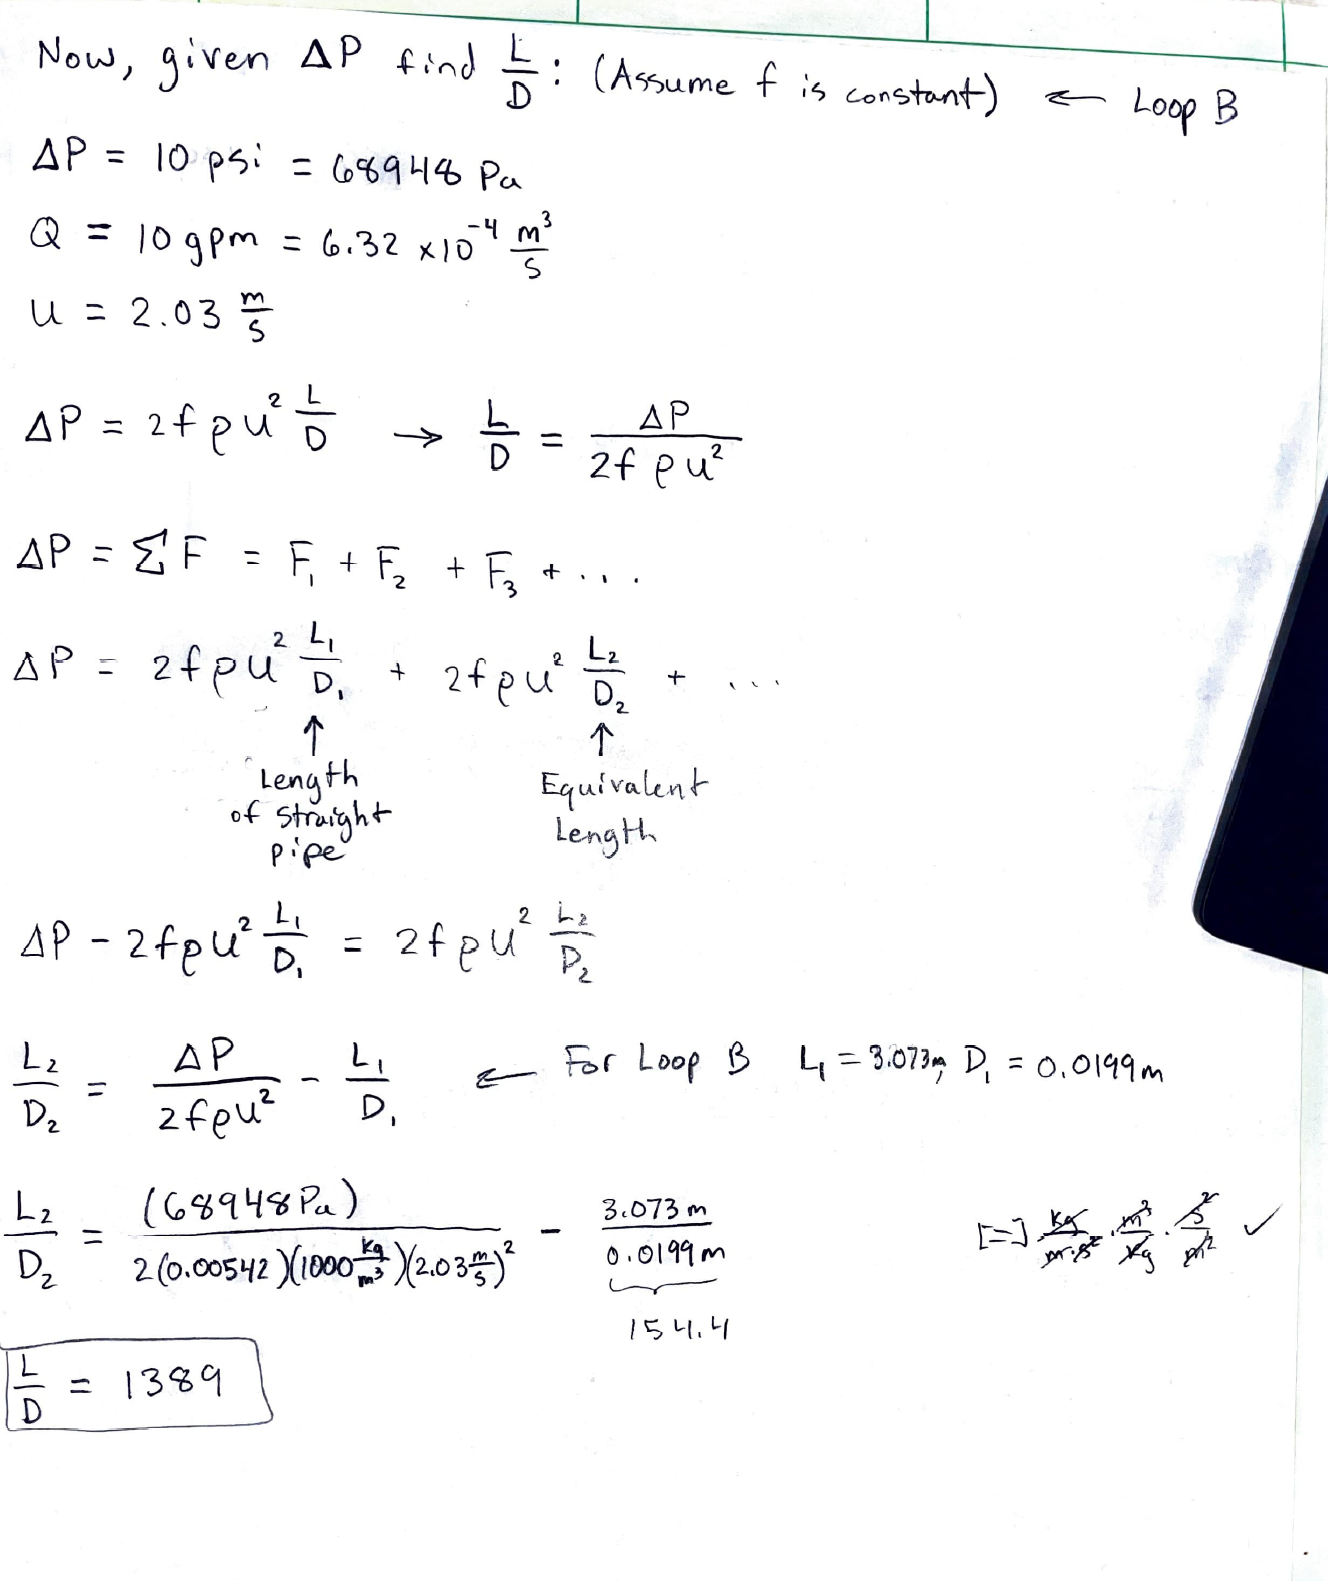 Now, given ΔP find L/D : (Assume f is constant) ← Loop B
ΔP = 10 psi = 68948 Pa
Q = 10 gpm = 6.32 x10^-4 m^3/s
u = 2.03 m/s
ΔP = 2fρu^2 L/D → L/D = ΔP/(2fρu^2)
ΔP = ΣF = F_1 + F_2 + F_3 + ...
ΔP = 2fρu^2 L_1/D_1 + 2fρu^2 L_2/D_2 + ...
↑ ↑
Length of straight pipe
Equivalent Length
ΔP - 2fρu^2 L_1/D_1 = 2fρu^2 L_2/D_2
L_2/D_2 = ΔP/(2fρu^2) - L_1/D_1 ← For Loop B L_1 = 3.073m, D_1 = 0.0199m
L_2/D_2 = (68948 Pa)/(2(0.00542)(1000 kg/m^3)(2.03 m/s)^2) - 3.073 m/0.0199 m [=] kg/m·s^2 · m^3/kg · s^2/m^2 ✓
154.4
L/D = 1389